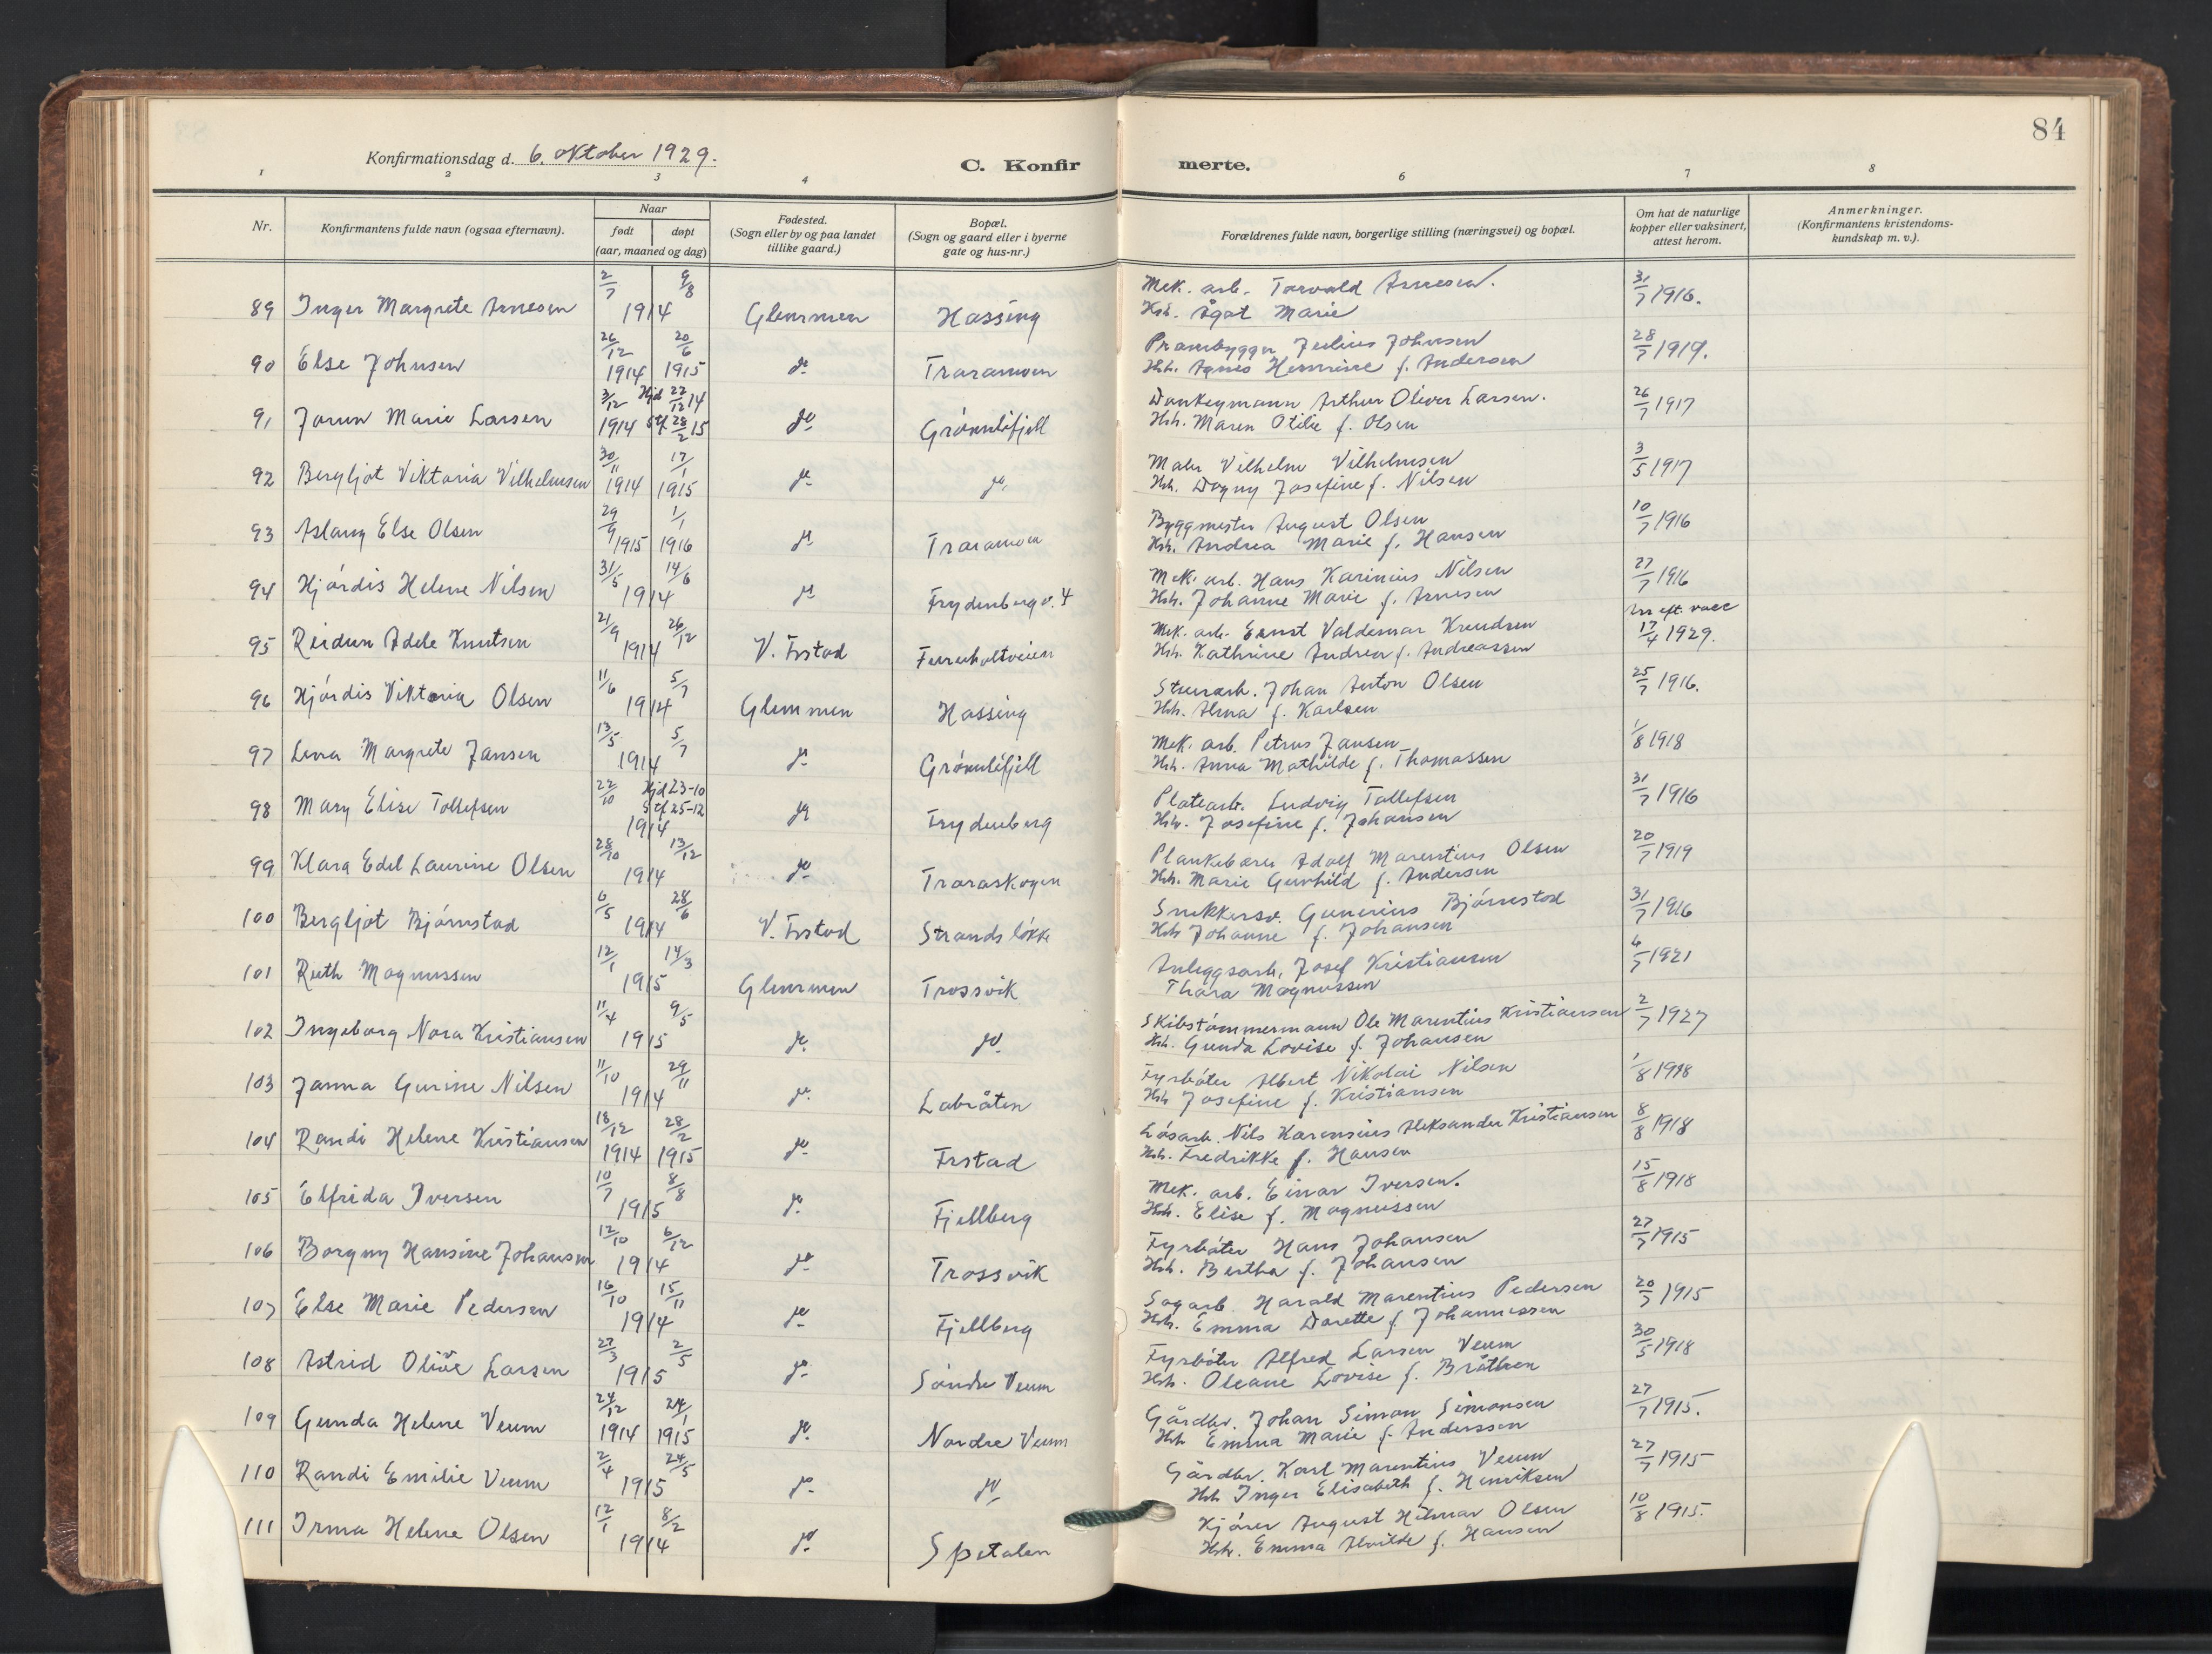 84
Konfirmationsdag d. 6. oktober 1929.
C. Konfir merte.
1 2 3 4 6 7 8
Nr.
Konfirmantens fulde navn (ogsaa efternavn).
Naar
født døpt
(aar, maaned og dag)
Fødested.
(Sogn eller by og paa landet
tillike gaard.)
Bopæl.
(Sogn og gaard eller i byerne
gate og hus-nr.)
Forældrenes fulde navn, borgerlige stilling (næringsvei) og bopæl.
Om hat de naturlige
kopper eller vaksinert,
attest herom.
Anmerkninger.
(Konfirmantens kristendoms-
kundskap m. v.).
2/7 9/8 Mek. arb. Torvald Arnesen. 31/7 1916.
89 Inger Margrete Arnesen 1914 Glemmen Hassing Hst. Ågot Marie
26/12 20/6 Prambygger Julius Johnsen 28/7 1919.
90 Else Johnsen 1914 1915 do Traramoen Hst. Agnes Henrine f. Andersen
3/12 Hjd 22/12 14 Donkeymann Arthur Oliver Larsen. 26/7 1917
91 Jorun Marie Larsen 1914 Stf 28/2 15 do Grønlifjell Hst. Maren Otilie f. Olsen
30/11 17/1 Maler Vilhelm Vilhelmsen 3/5 1917
92 Bergljot Viktoria Vilhelmsen 1914 1915 do do Hst. Dagny Josefine f. Nilsen
29/9 1/1 Byggmester August Olsen 10/7 1916
93 Aslaug Else Olsen 1915 1916 do Traramoen Hst. Andrea Marie f. Hansen
31/5 14/6 Mek. arb. Hans Karinius Nilsen 27/7 1916
94 Hjördis Helene Nilsen 1914 do Frydenberg v. 4 Hst. Johanne Marie f. Arnesen
21/9 26/12 Mek. arb. Ernst Valdemar Knudsen 17/4 1929.
95 Reidun Adele Knutsen 1914 V. Frstad Furuholtveien Hst. Kathrine Andrea f. Andreassen
11/6 5/7 Stuerarb. Johan Anton Olsen 25/7 1916.
96 Hjördis Viktoria Olsen 1914 Glemmen Hassing Hst. Alma f. Karlsen
13/5 5/7 Mek. arb. Petrus Jansen 1/8 1918
97 Lena Margrete Jansen 1914 do Grønlifjell Hst. Anna Mathilde f. Thomassen
22/10 Hjd 23-10 Stf 25-12 Platearb. Ludvig Tollefsen 31/7 1916
98 Mary Elise Tollefsen 1914 do Frydenberg Hst. Josefine f. Johansen
28/10 13/12 Plankebærer Adolf Marentius Olsen 20/7 1919
99 Klara Edel Laurine Olsen 1914 do Traraskogen Hst. Marie Gunhild f. Andersen
6/5 28/6 Snekkersv. Gunerius Bjørnstad 31/7 1916
100 Bergljot Bjørnstad 1914 V. Frstad Strandsløkke Hst Johanne f. Johansen
12/1 14/3 Anleggsarb. Josef Kristiansen 6/7 1921
101 Ruth Magnussen 1915 Glemmen Trossvik Thora Magnussen
11/4 9/5 Skibstømmermann Ole Marentius Kristiansen 2/7 1927
102 Ingeborg Nora Kristiansen 1915 do do Hst. Gunda Lovise f. Johansen
11/10 29/11 Fyrbøter Albert Nikolai Nilsen 1/8 1918
103 Janna Gurine Nilsen 1914 do Labråten Hst Josefine f. Kristiansen
18/12 28/2 Løsarb. Nils Karensius Aleksander Kristiansen 8/8 1918
104 Randi Helene Kristiansen 1914 1915 do Frstad Hst. Fredrikke f. Hansen
10/7 8/8 Mek. arb. Einar Iversen. 15/8 1918
105 Elfrida Iversen 1915 do Fjellberg Hst. Elise f. Magnussen
12/10 6/12 Fyrbøter Hans Johansen 27/7 1915
106 Borgny Hansine Johansen 1914 do Trossvik Hst. Bertha f. Johansen
16/10 15/11 Sagarb. Harald Marentius Pedersen 20/7 1915
107 Else Marie Pedersen 1914 do Fjellberg Hst. Emma Dorette f. Johannessen
27/3 2/5 Fyrbøter Alfred Larsen Veum 30/5 1918
108 Astrid Olive Larsen 1915 do Søndre Veum Hst. Oleane Lovise f. Bråthen
24/12 24/1 Gårdbr. Johan Simon Simonsen 27/7 1915.
109 Gunda Helene Veum 1914 1915 do Nordre Veum Hst Emma Marie f. Anderssen
2/4 24/5 Gårdbr. Karl Marentius Veum 27/7 1915
110 Randi Emilie Veum 1915 do do Hst Inger Elisabeth f. Henriksen
12/1 8/2 Kjører August Hilmar Olsen 10/8 1915.
111 Irma Helene Olsen 1914 do Spetalen Hst. Emma Alvilde f. Hansen